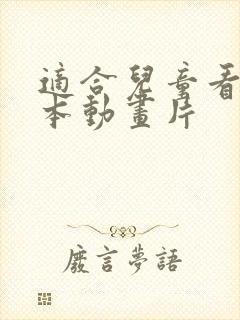 適合兒童看
本動畫片
廢言夢語